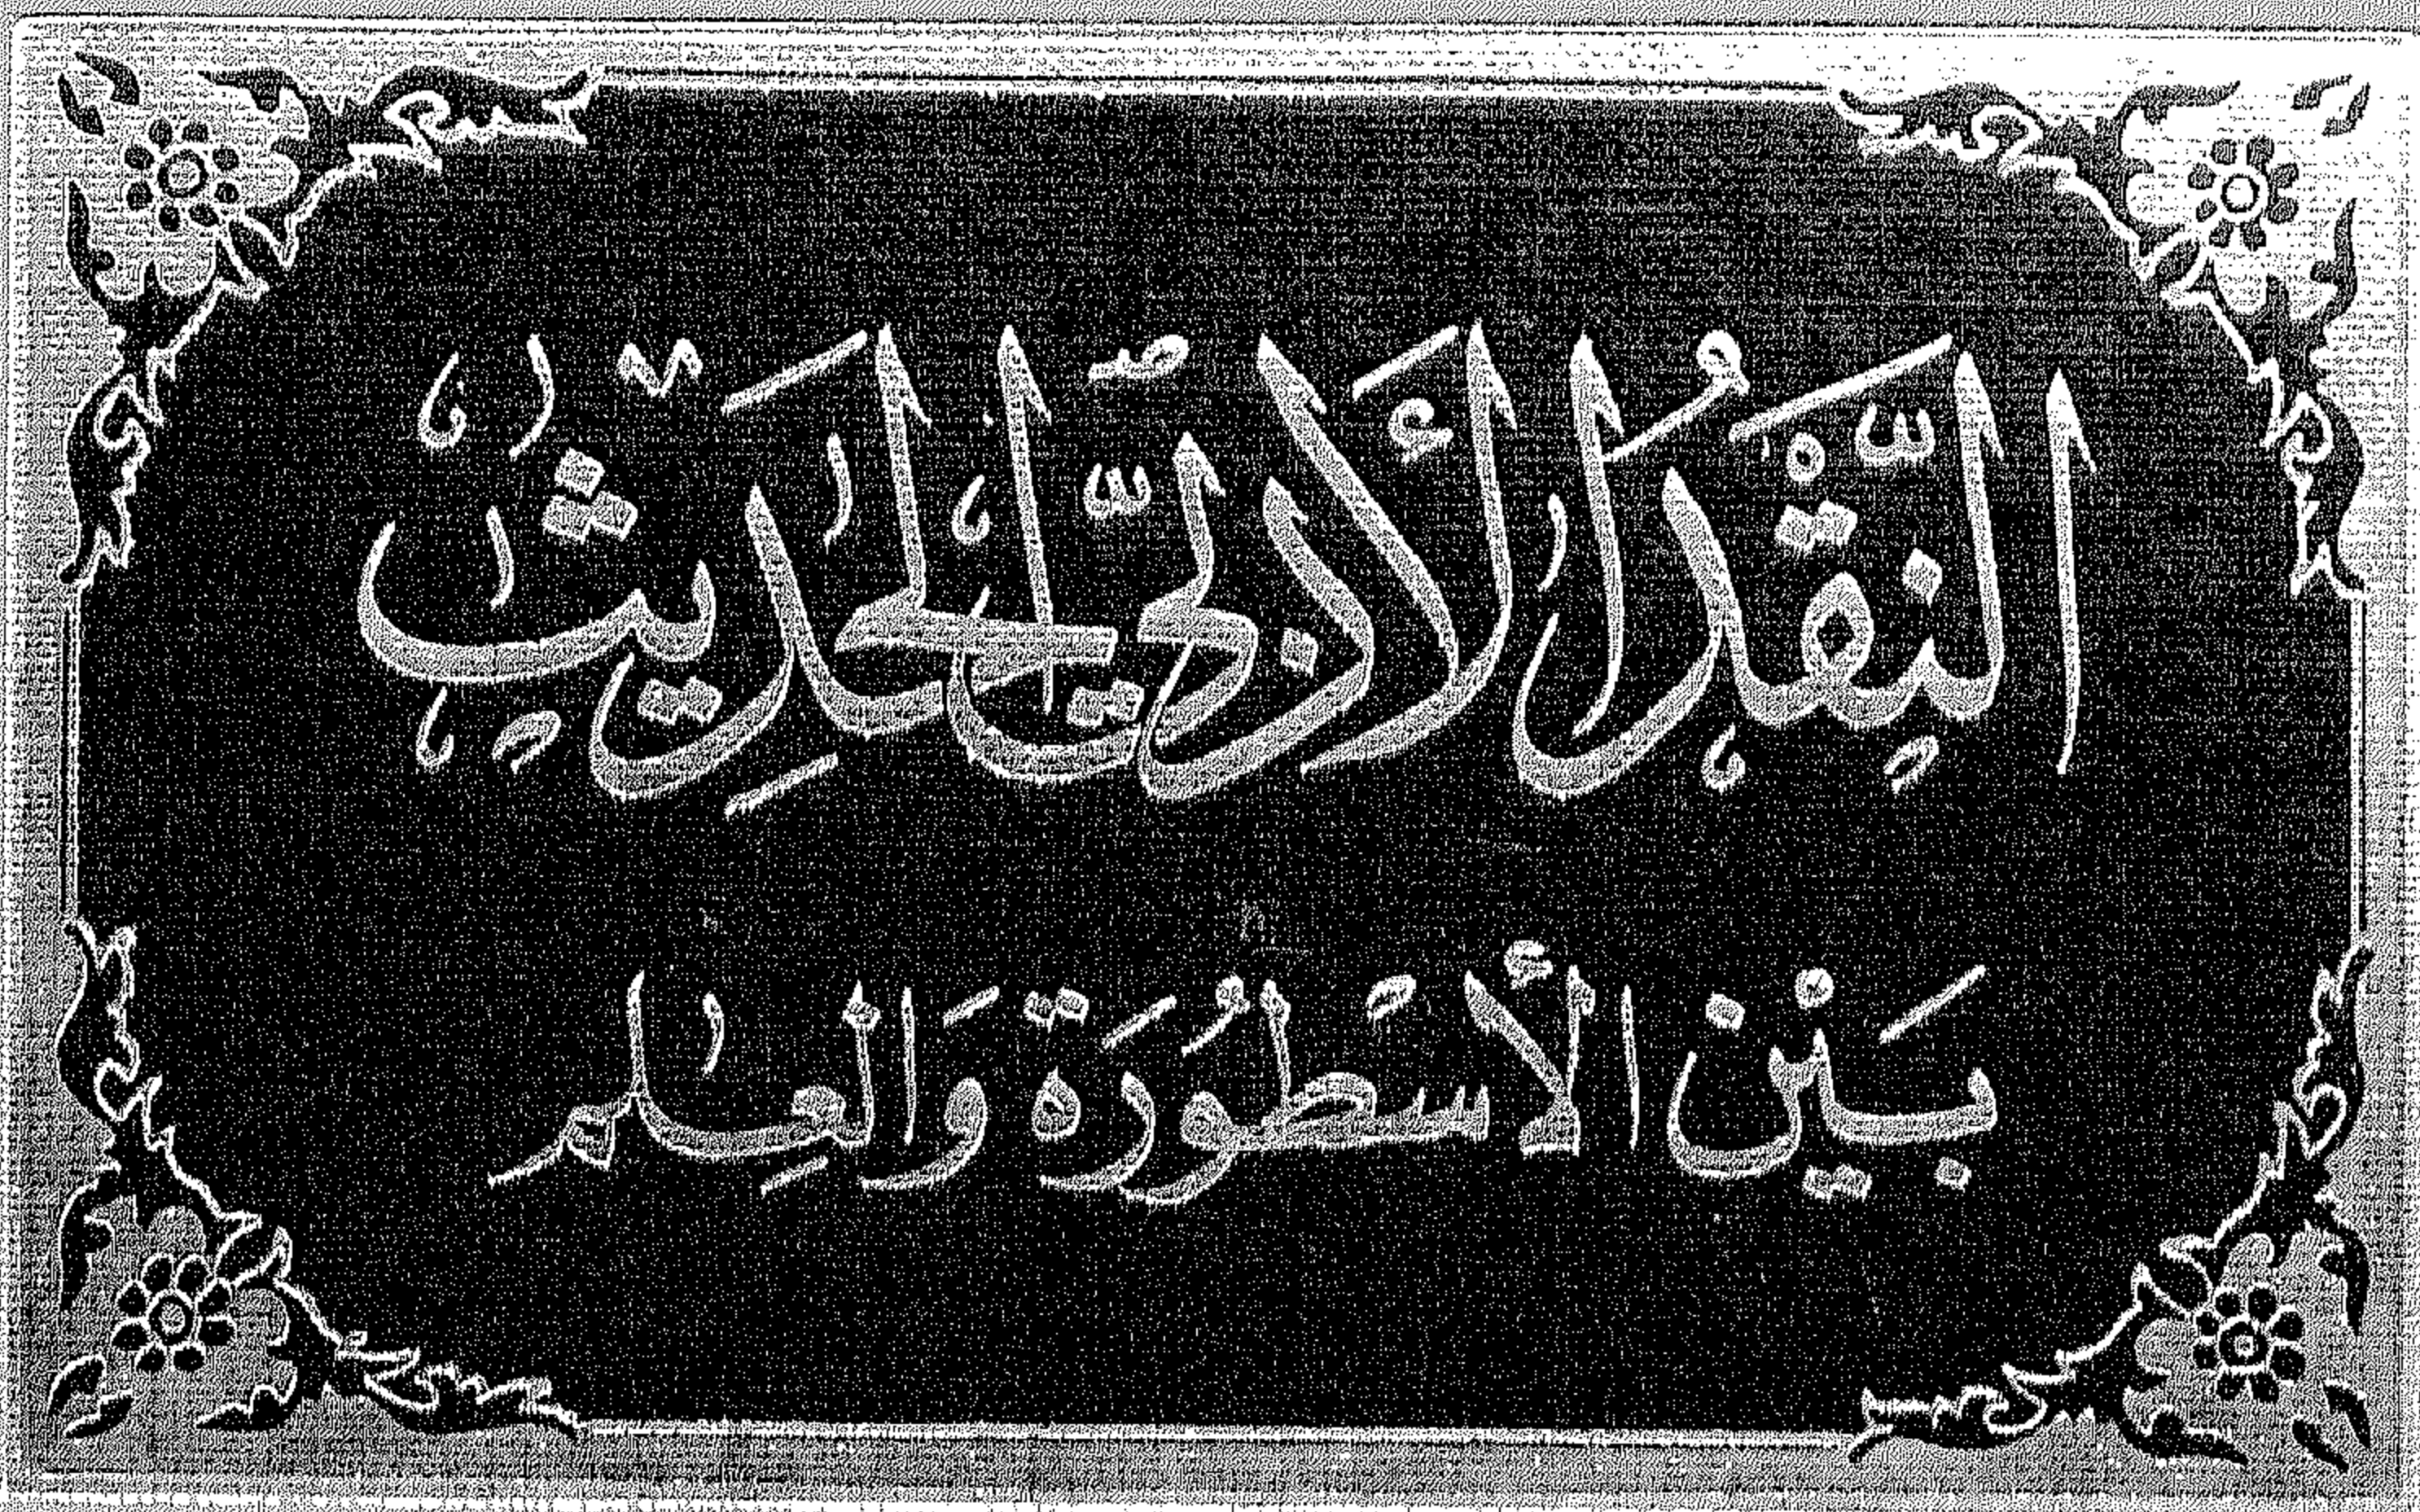 النقد الأدبي الحديث
بَيْن الأسْطُورَة وَالعِلم